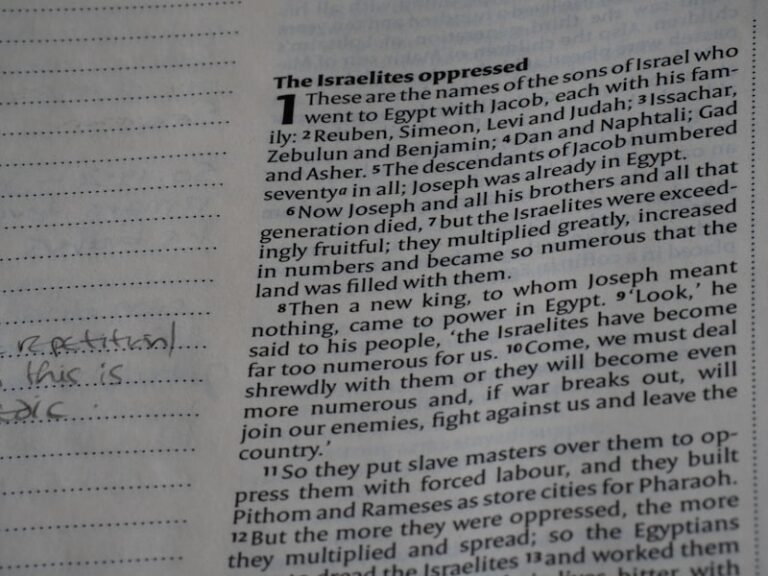 The Israelites oppressed
1 These are the names of the sons of Israel who
went to Egypt with Jacob, each with his fam-
ily: 2 Reuben, Simeon, Levi and Judah; 3 Issachar,
Zebulun and Benjamin; 4 Dan and Naphtali; Gad
and Asher. 5 The descendants of Jacob numbered
seventy a in all; Joseph was already in Egypt.
6 Now Joseph and all his brothers and all that
generation died, 7 but the Israelites were exceed-
ingly fruitful; they multiplied greatly, increased
in numbers and became so numerous that the
land was filled with them.
8 Then a new king, to whom Joseph meant
nothing, came to power in Egypt. 9 ‘Look,’ he
said to his people, ‘the Israelites have become
far too numerous for us. 10 Come, we must deal
shrewdly with them or they will become even
more numerous and, if war breaks out, will
join our enemies, fight against us and leave the
country.’
11 So they put slave masters over them to op-
press them with forced labour, and they built
Pithom and Rameses as store cities for Pharaoh.
12 But the more they were oppressed, the more
they multiplied and spread; so the Egyptians
dread the Israelites 13 and worked them
lives bitter with
repetition/
this is